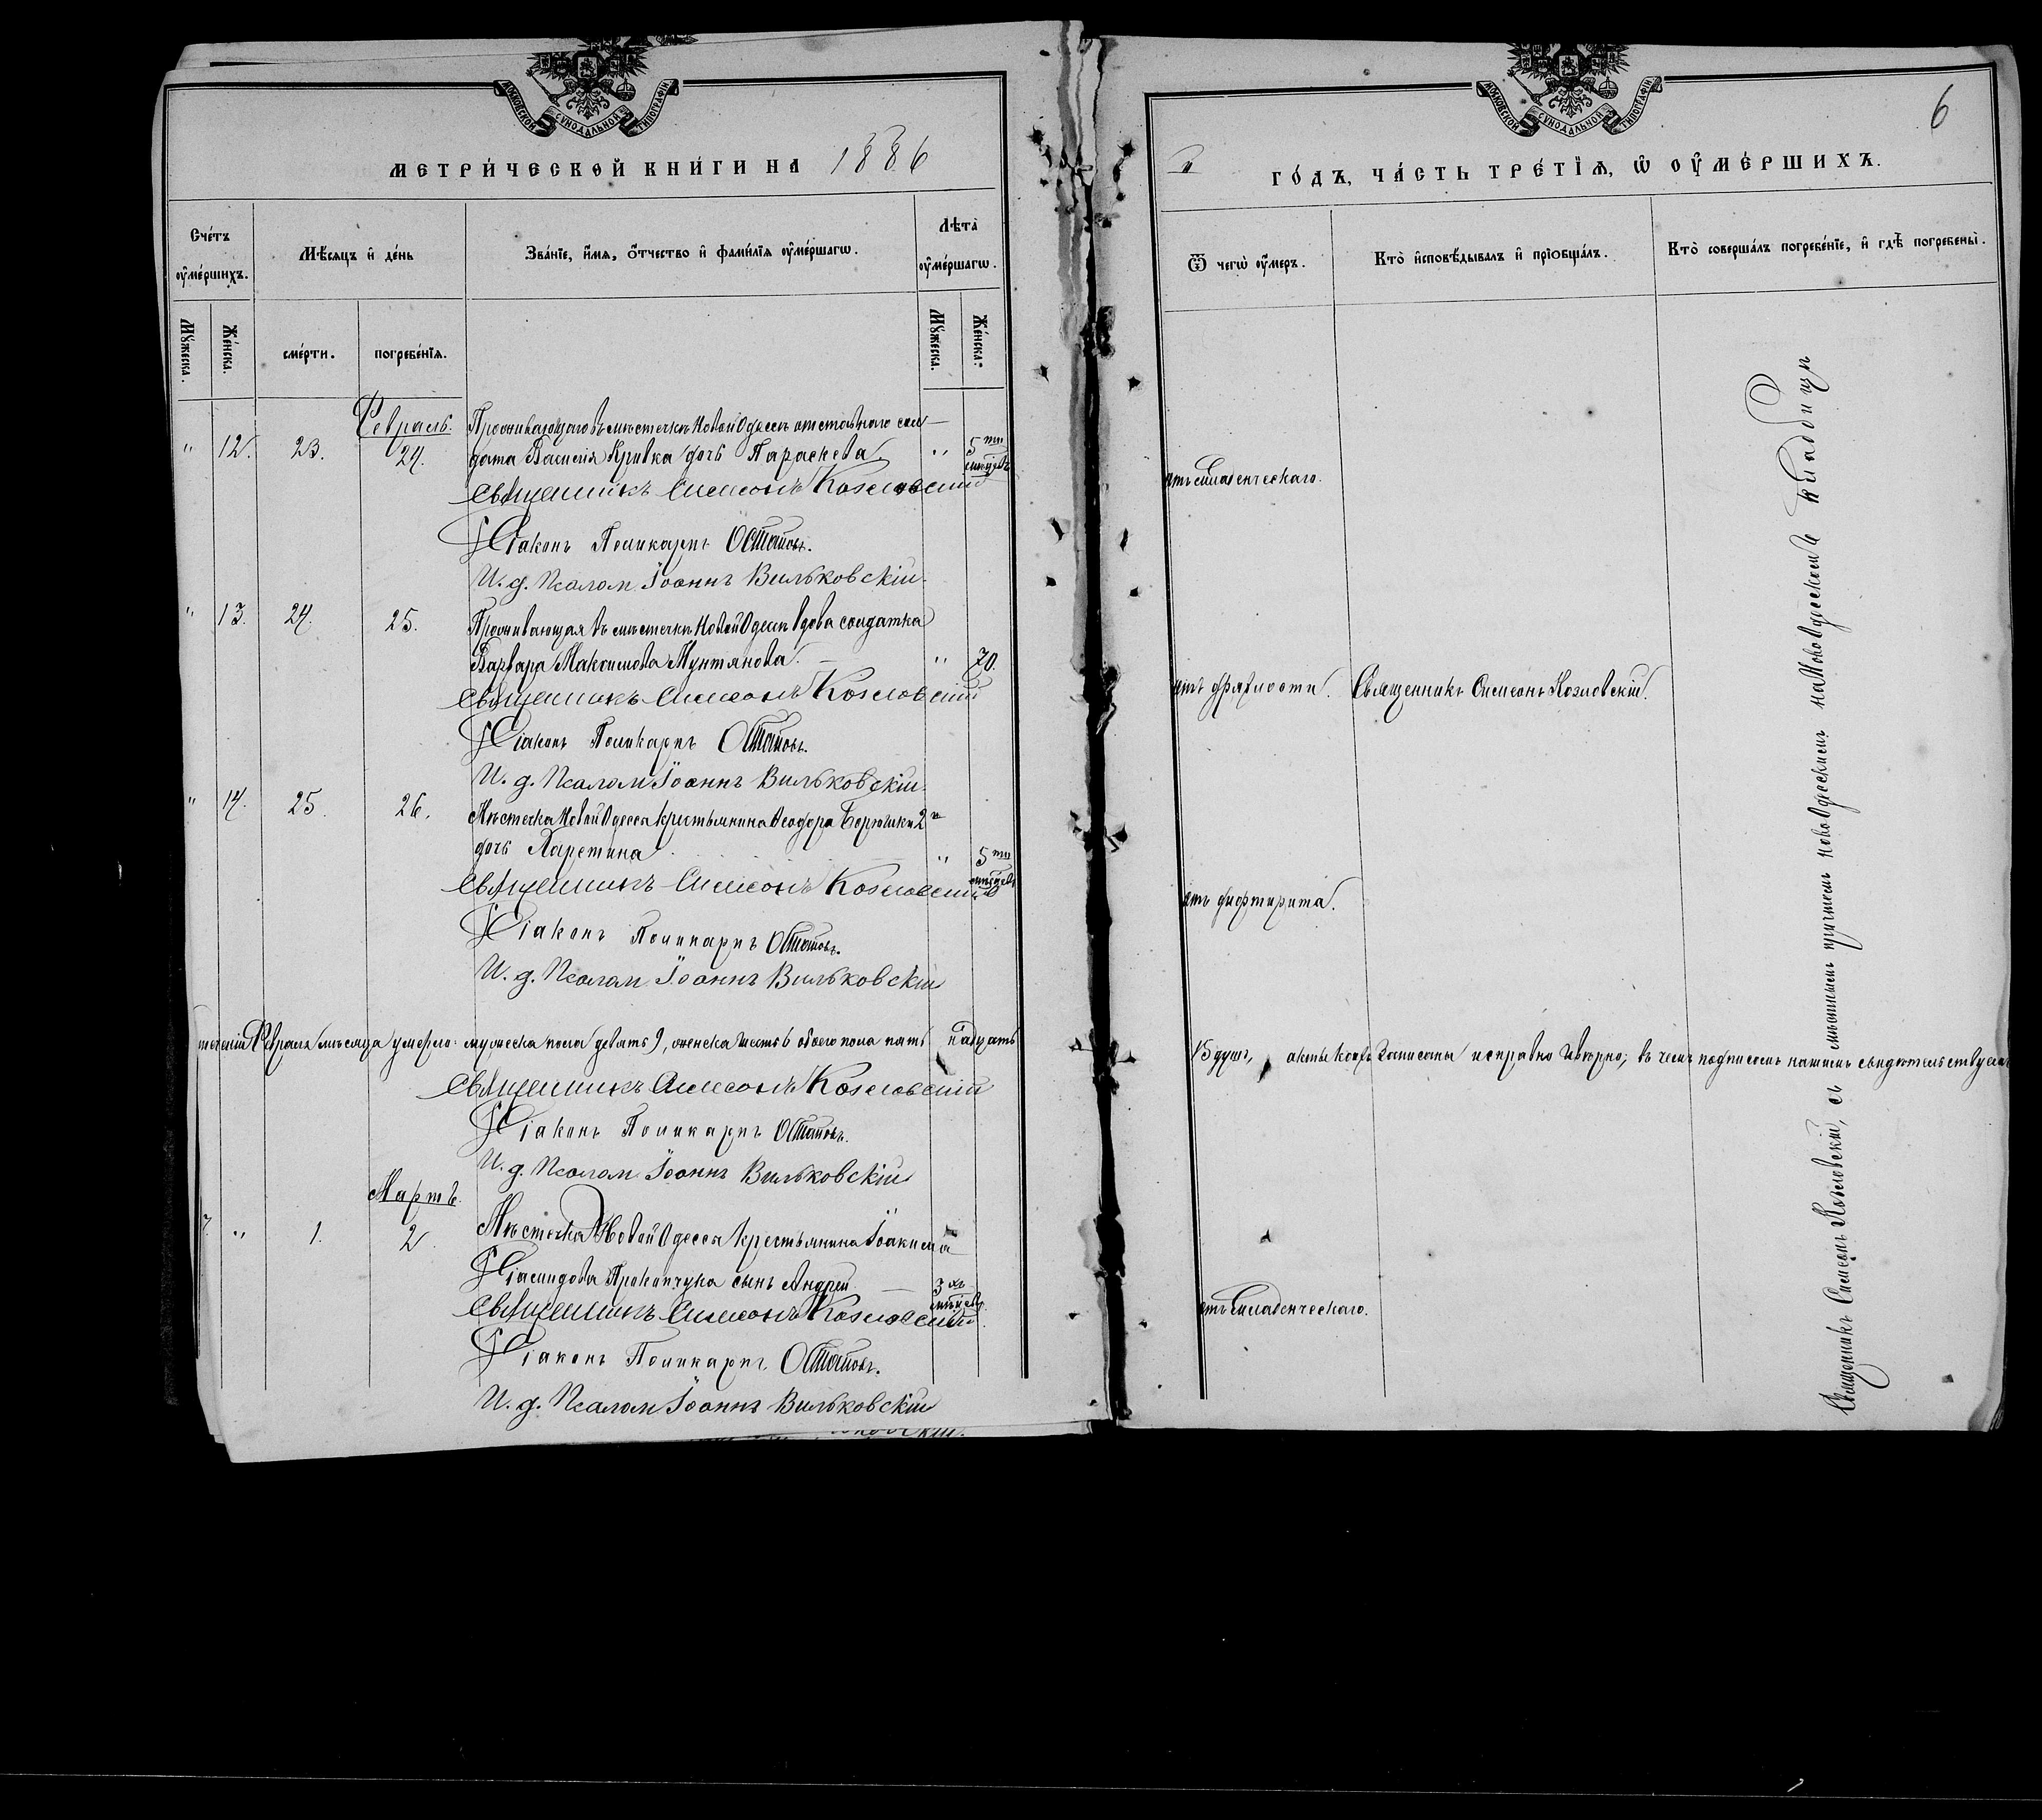 МОСКОВСКОЙ СѴНОДАЛЬНОЙ ТИПОГРАФІИ
МЕТРИ́ЧЕСКОЙ КНИ́ГИ НА 1886
Сче́тъ оу҆ме́ршихъ.
Мѣ́сяцъ и҆ де́нь
Зва́нїе, и҆́мѧ, ѻ҆́тчество и҆ фамѝлїѧ оу҆ме́ршагѡ.
Лѣ́та оу҆ме́ршагѡ.
Мꙋ́жеска.
Же́нска.
сме́рти.
погребе́нїѧ.
Мꙋ́жеска.
Же́нска.
Февраль.
" 12. 23. 24. Проживающаго въ мѣстечкѣ Новой Одессѣ отставного сол
дата Василія Кривка дочь Параскева. " 5ти мѣсяцевъ
Священникъ Симеонъ Козловскій
Діаконъ Поликарпъ Остапов.
И. д. Псалом. Іоаннъ Вильковскій
" 13. 24. 25. Проживающая въ мѣстечкѣ Новой Одессѣ вдова солдатка
Варвара Максимова Мунтянова. " 70.
Священникъ Симеонъ Козловскій
Діаконъ Поликарпъ Остапов.
И. д. Псалом. Іоаннъ Вильковскій
" 14. 25. 26. Мѣстечка Новой Одесса крестьянина Ѳеодора 2я
дочь Харетина " 5ти мѣсяцевъ
Священникъ Симеонъ Козловскій
Діаконъ Поликарпъ Остапов.
И. д. Псалом. Іоаннъ Вильковскій
Февраля мѣсяца умерло: мужеска пола девять 9, женска шесть 6 обоего пола пят надцать
Священникъ Симеонъ Козловскій
Діаконъ Поликарпъ Остапов.
И. д. Псалом. Іоаннъ Вильковскій
Мартъ.
" 1. 2. Мѣстечка Новой Одесса крестьянина Іоакима
Прокопчука сынъ Андрей 3хъ мѣсяцевъ.
Священникъ Симеонъ Козловскій
Діаконъ Поликарпъ Остапов.
И. д. Псалом. Іоаннъ Вильковскій
6
МОСКОВСКОЙ СѴНОДАЛЬНОЙ ТИПОГРАФІИ
ГО́ДЪ, ЧА́СТЬ ТРЕ́ТЇѦ, Ѡ҆ ОУ҆МЕ́РШИХЪ.
Ѿ чегѡ̀ оу҆́меръ.
Кто̀ и҆сповѣ́дывалъ и҆ прїѻбща́лъ.
Кто̀ соверша́лъ погребе́нїе, и҆ гдѣ̀ погребены̀.
отъ младенческаго.
отъ дряхлости. Священникъ Симеонъ Козловскій.
отъ дифтирита.
15 душъ, акты коихъ записаны исправно и вѣрно; въ чемъ подписомъ нашимъ свидѣтельствуемъ
отъ младенческаго.
Священникъ Симеонъ Козловскій, съ мѣстнымъ причтомъ новоодесскимъ на Новоодесскомъ кладбищѣ